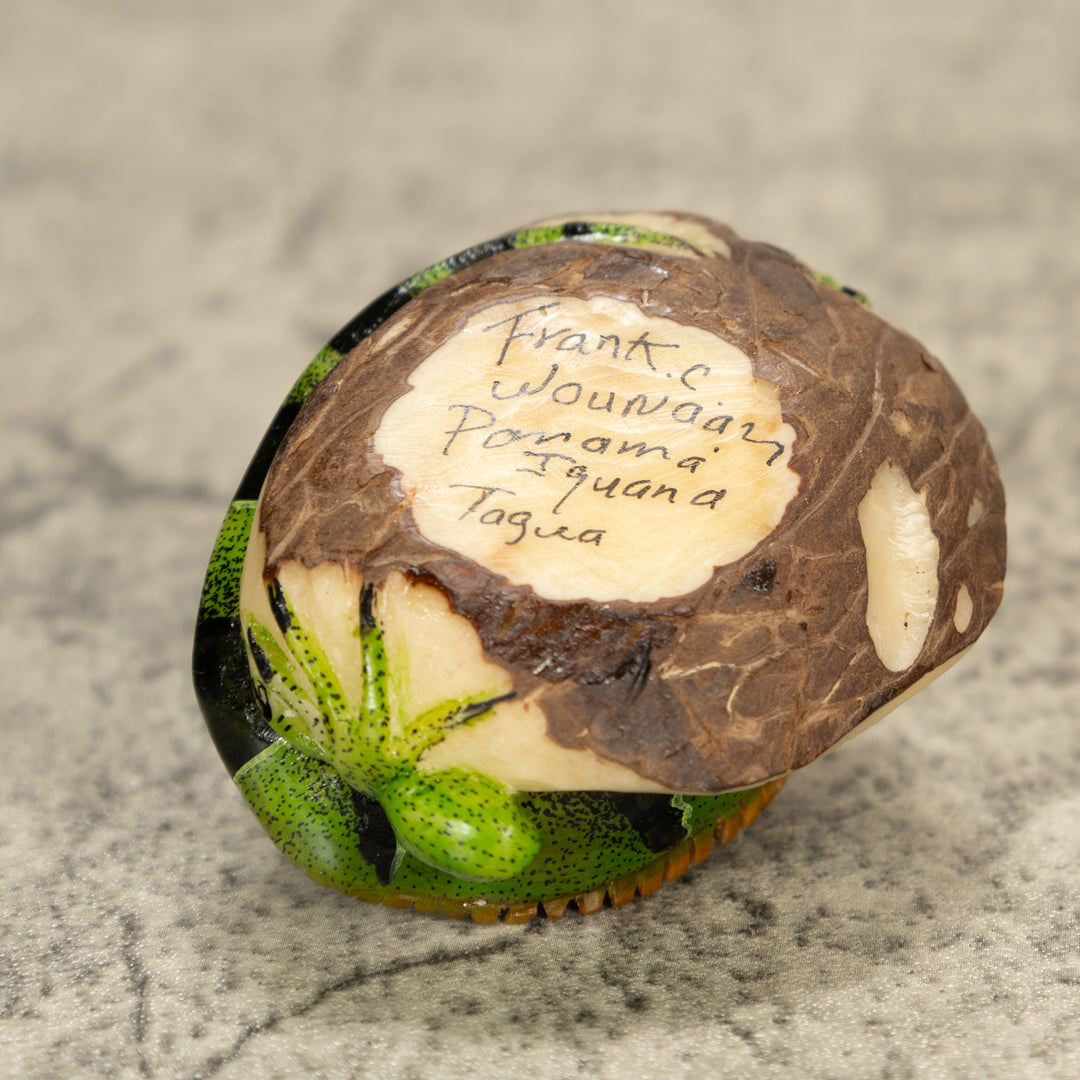 Frank.C
Wounaan
Panamá
Iguana
Tagua